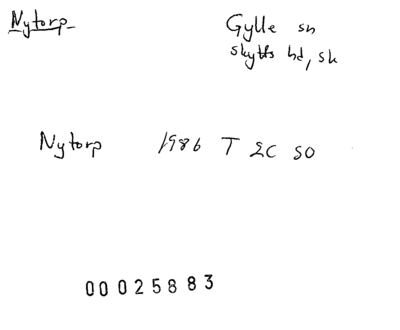 Nytorp
Gylle sn
Skytts hd, Sk
Nytorp 1986 T 2C SO
00025883